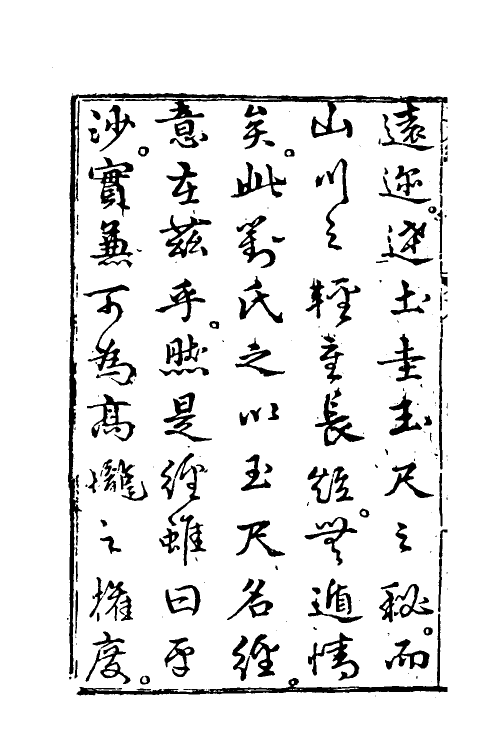 遠邇。逹土圭玉尺之秘。而
山川之輕重長短。無遁情
矣。此劉氏之以玉尺名經。
意在茲乎。然是經雖曰平
沙。實兼可為高壠之權度。